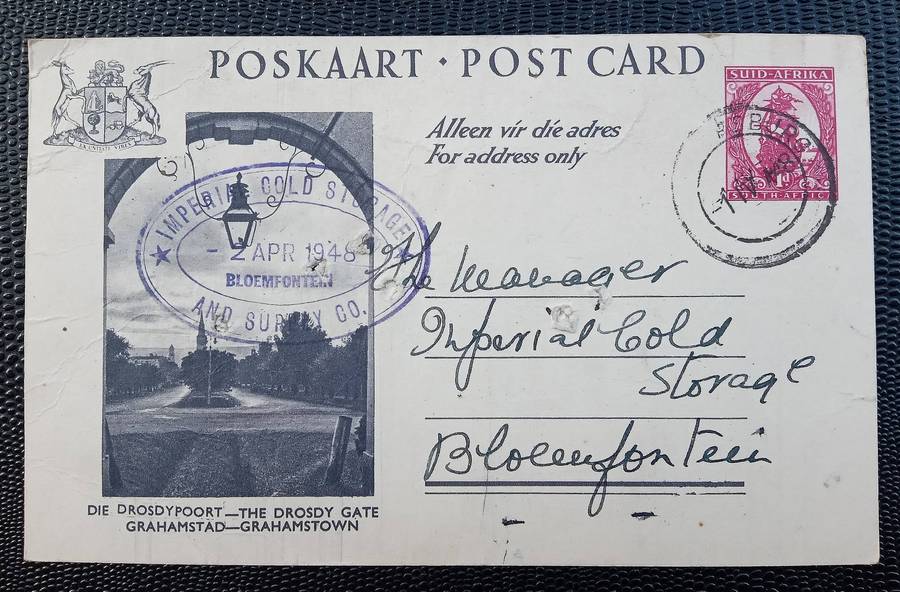 POSKAART · POST CARD
EX UNITATE VIRES
SUID-AFRIKA
1d
SOUTH-AFRICA
Alleen vir die adres
For address only
IMPERIAL COLD STORAGE
- 2 APR 1948
BLOEMFONTEIN
AND SUPPLY CO.
The Manager
Imperial Cold
Storage
Bloemfontein
DIE DROSDYPOORT—THE DROSDY GATE
GRAHAMSTAD—GRAHAMSTOWN